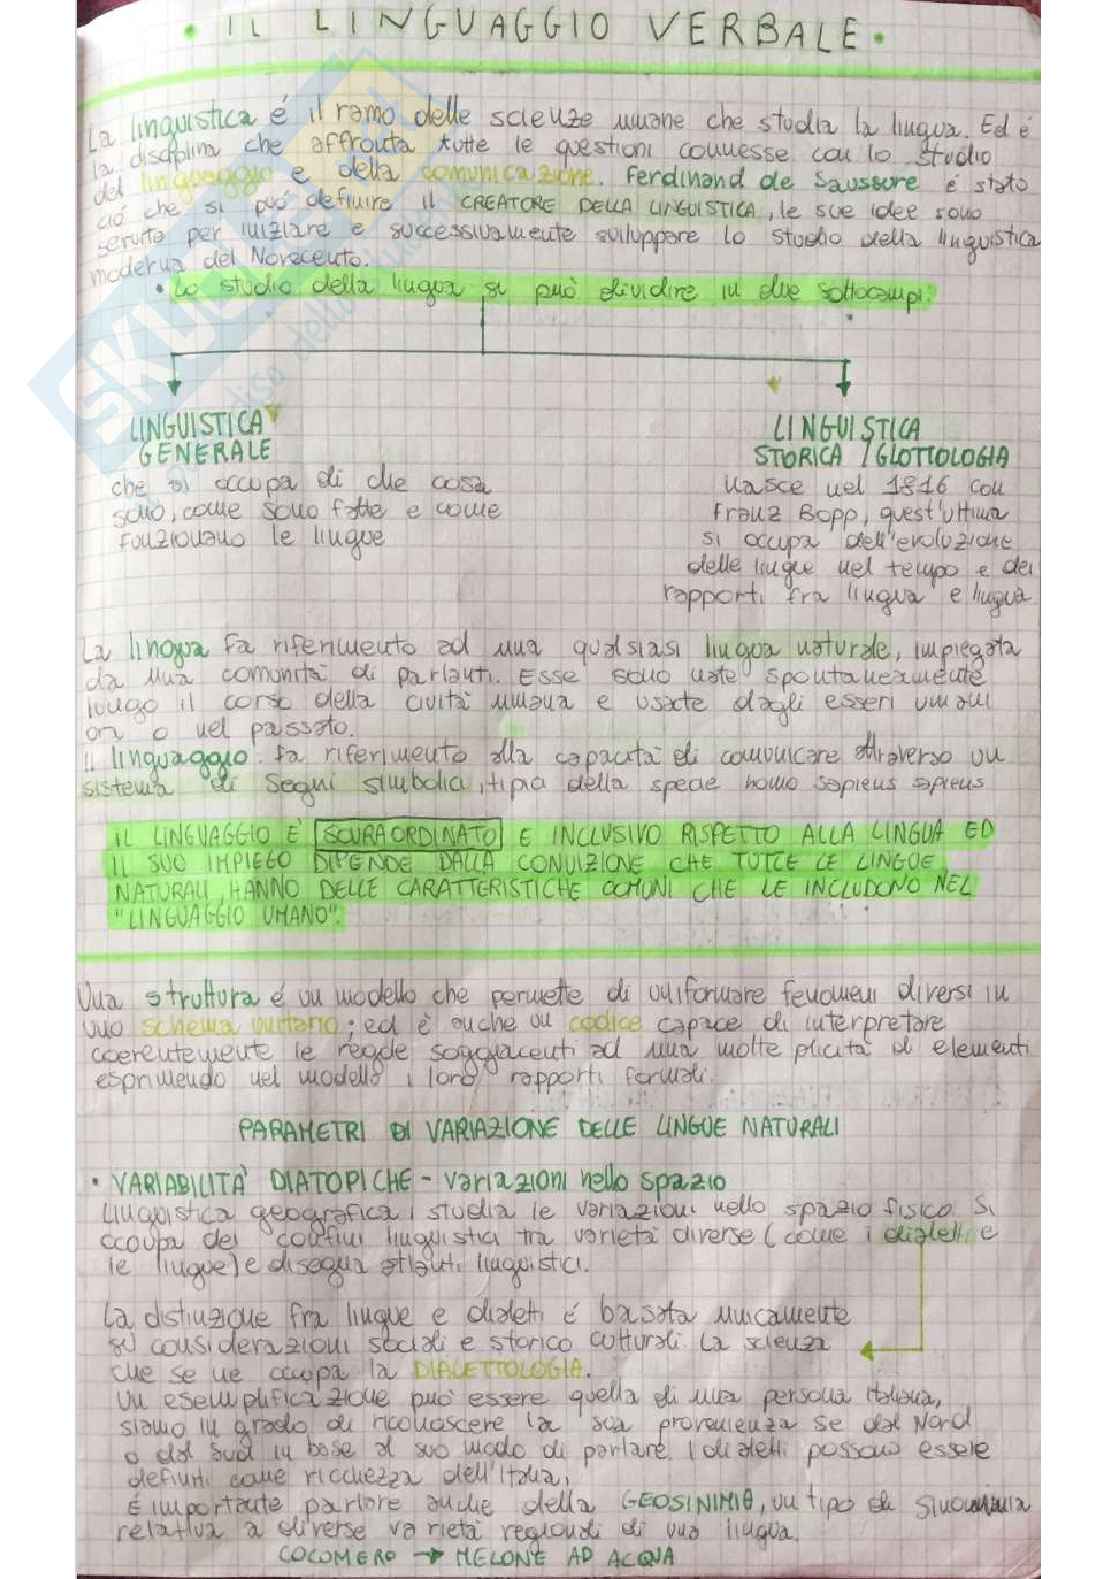 • IL LINGUAGGIO VERBALE •
La linguistica é il ramo delle scienze umane che studia la lingua. Ed é
la disciplina che affronta tutte le questioni connesse con lo studio
del linguaggio e della comunicazione. Ferdinand de Saussure é stato
ció che si puó definire il CREATORE DELLA LINGUISTICA, le sue idee sono
servite per iniziare e successivamente sviluppare lo studio della linguistica
moderna del Novecento.
• Lo studio della lingua si puó dividire in due sottocampi:
LINGUISTICA
GENERALE
che si occupa di che cosa
sono, come sono fatte e come
funzionano le lingue
LINGUISTICA
STORICA / GLOTTOLOGIA
nasce nel 1816 con
Franz Bopp, quest'ultima
si occupa dell'evoluzione
delle lingue nel tempo e dei
rapporti fra lingua e lingua
La lingua fa riferimento ad una qualsiasi lingua naturale, impiegata
da una comunitá di parlanti. Esse sono nate spontaneamente
lungo il corso della civiltá umana e usate dagli esseri umani
ora o nel passato.
Il linguaggio fa riferimento alla capacitá di comunicare attraverso un
sistema di segni simbolici, tipici della specie homo sapiens sapiens
IL LINGUAGGIO É SOVRAORDINATO E INCLUSIVO RISPETTO ALLA LINGUA ED
IL SUO IMPIEGO DIPENDE DALLA CONVIZIONE CHE TUTTE LE LINGUE
NATURALI HANNO DELLE CARATTERISTICHE COMUNI CHE LE INCLUDONO NEL
"LINGUAGGIO UMANO".
Una struttura é un modello che permette di uniformare fenomeni diversi in
uno schema unitario; ed é anche un codice capace di interpretare
coerentemente le regole soggiacenti ad una molteplicitá di elementi
esprimendo nel modello i loro rapporti formali.
PARAMETRI DI VARIAZIONE DELLE LINGUE NATURALI
• VARIABILITÁ DIATOPICHE - variazioni nello spazio
Linguistica geografica, studia le variazioni nello spazio fisico. Si
occupa dei confini linguistici tra varietá diverse (come i dialetti e
le lingue) e disegna atlanti linguistici.
La distinzione fra lingue e dialetti é basata unicamente
su considerazioni sociali e storico culturali. La scienza
che se ne occupa la DIALETTOLOGIA.
Un esemplificazione puó essere quella di una persona italiana,
siamo in grado di riconoscere la sua provenienza se dal Nord
o dal Sud in base al suo modo di parlare. I dialetti possono essere
definiti come ricchezza dell'Italia.
É importante parlare anche della GEOSINIMIA, un tipo di sinonimia
relativa a diverse varietá regionali di una lingua.
COCOMERO → MELONE AD ACQUA